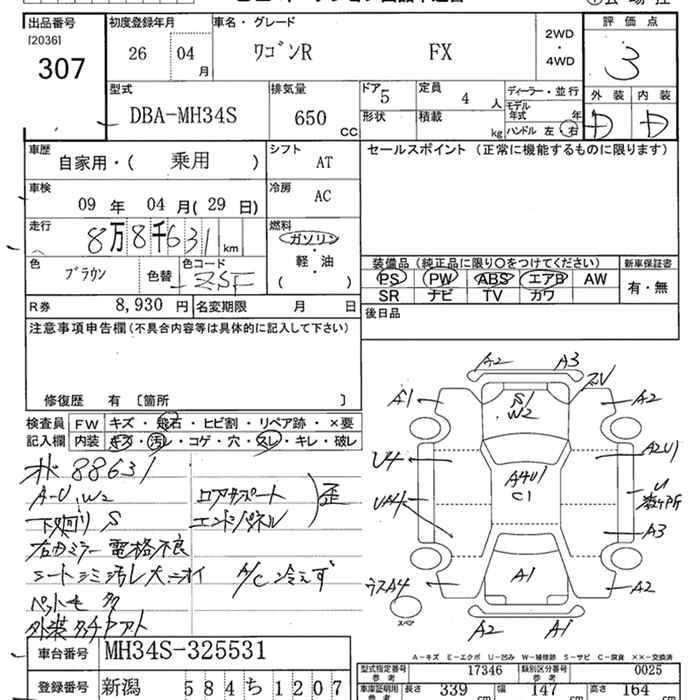 出品番号 初度登録年月 車名・グレード 評価点
[2036]
307
26 04 月 ワゴンR FX 2WD・4WD 3
型式 排気量 ドア 5 定員 4 人 ディーラー・並行 外装 内装
DBA-MH34S 650 CC 形状 積載 kg モデル年式 年 D D
ハンドル 左・右
車歴 自家用・( 乗用 ) シフト AT セールスポイント (正常に機能するものに限ります)
車検 09 年 04 月 ( 29 日) 冷房 AC
走行 8万8千631 km 燃料 ガソリン・軽・油 ( )
色 ブラウン 色替 色コード ZSF
装備品 (純正品に限り○をつけてください) 新車保証書
PS PW ABS エアB AW 有・無
SR ナビ TV カワ
R券 8,930 円 名変期限 月 日 後日品
注意事項申告欄 (不具合内容等は具体的に記入して下さい)
修復歴 有 〔箇所 〕
検査員 FW キズ・飛石・ヒビ割・リペア跡・×要
記入欄 内装 キズ・汚レ・コゲ・穴・スレ・キレ・破レ
88631
A-U, W2 コアサポート
下廻り S エンドパネル 歪
右ミラー 電格不良
シートシミ汚レ大 ニオイ A/C 冷えず
ペットモ 多
A2 A3
A1 S1 W2 A2
U4 A4U1 C1 A2U1
UA4 U 数ヶ所
A3
ラスA4 A1 A2
スペア
A2 A1
A-キズ E-エクボ U-凹み W-補修跡 S-サビ C-腐食 ××-交換済
車台番号 MH34S-325531
登録番号 新潟 584 ち 1207
型式指定番号 参考 17346 類別区分番号 参考 0025
車庫証明用 参考 長さ 339 cm 幅 147 cm 高さ 164 cm